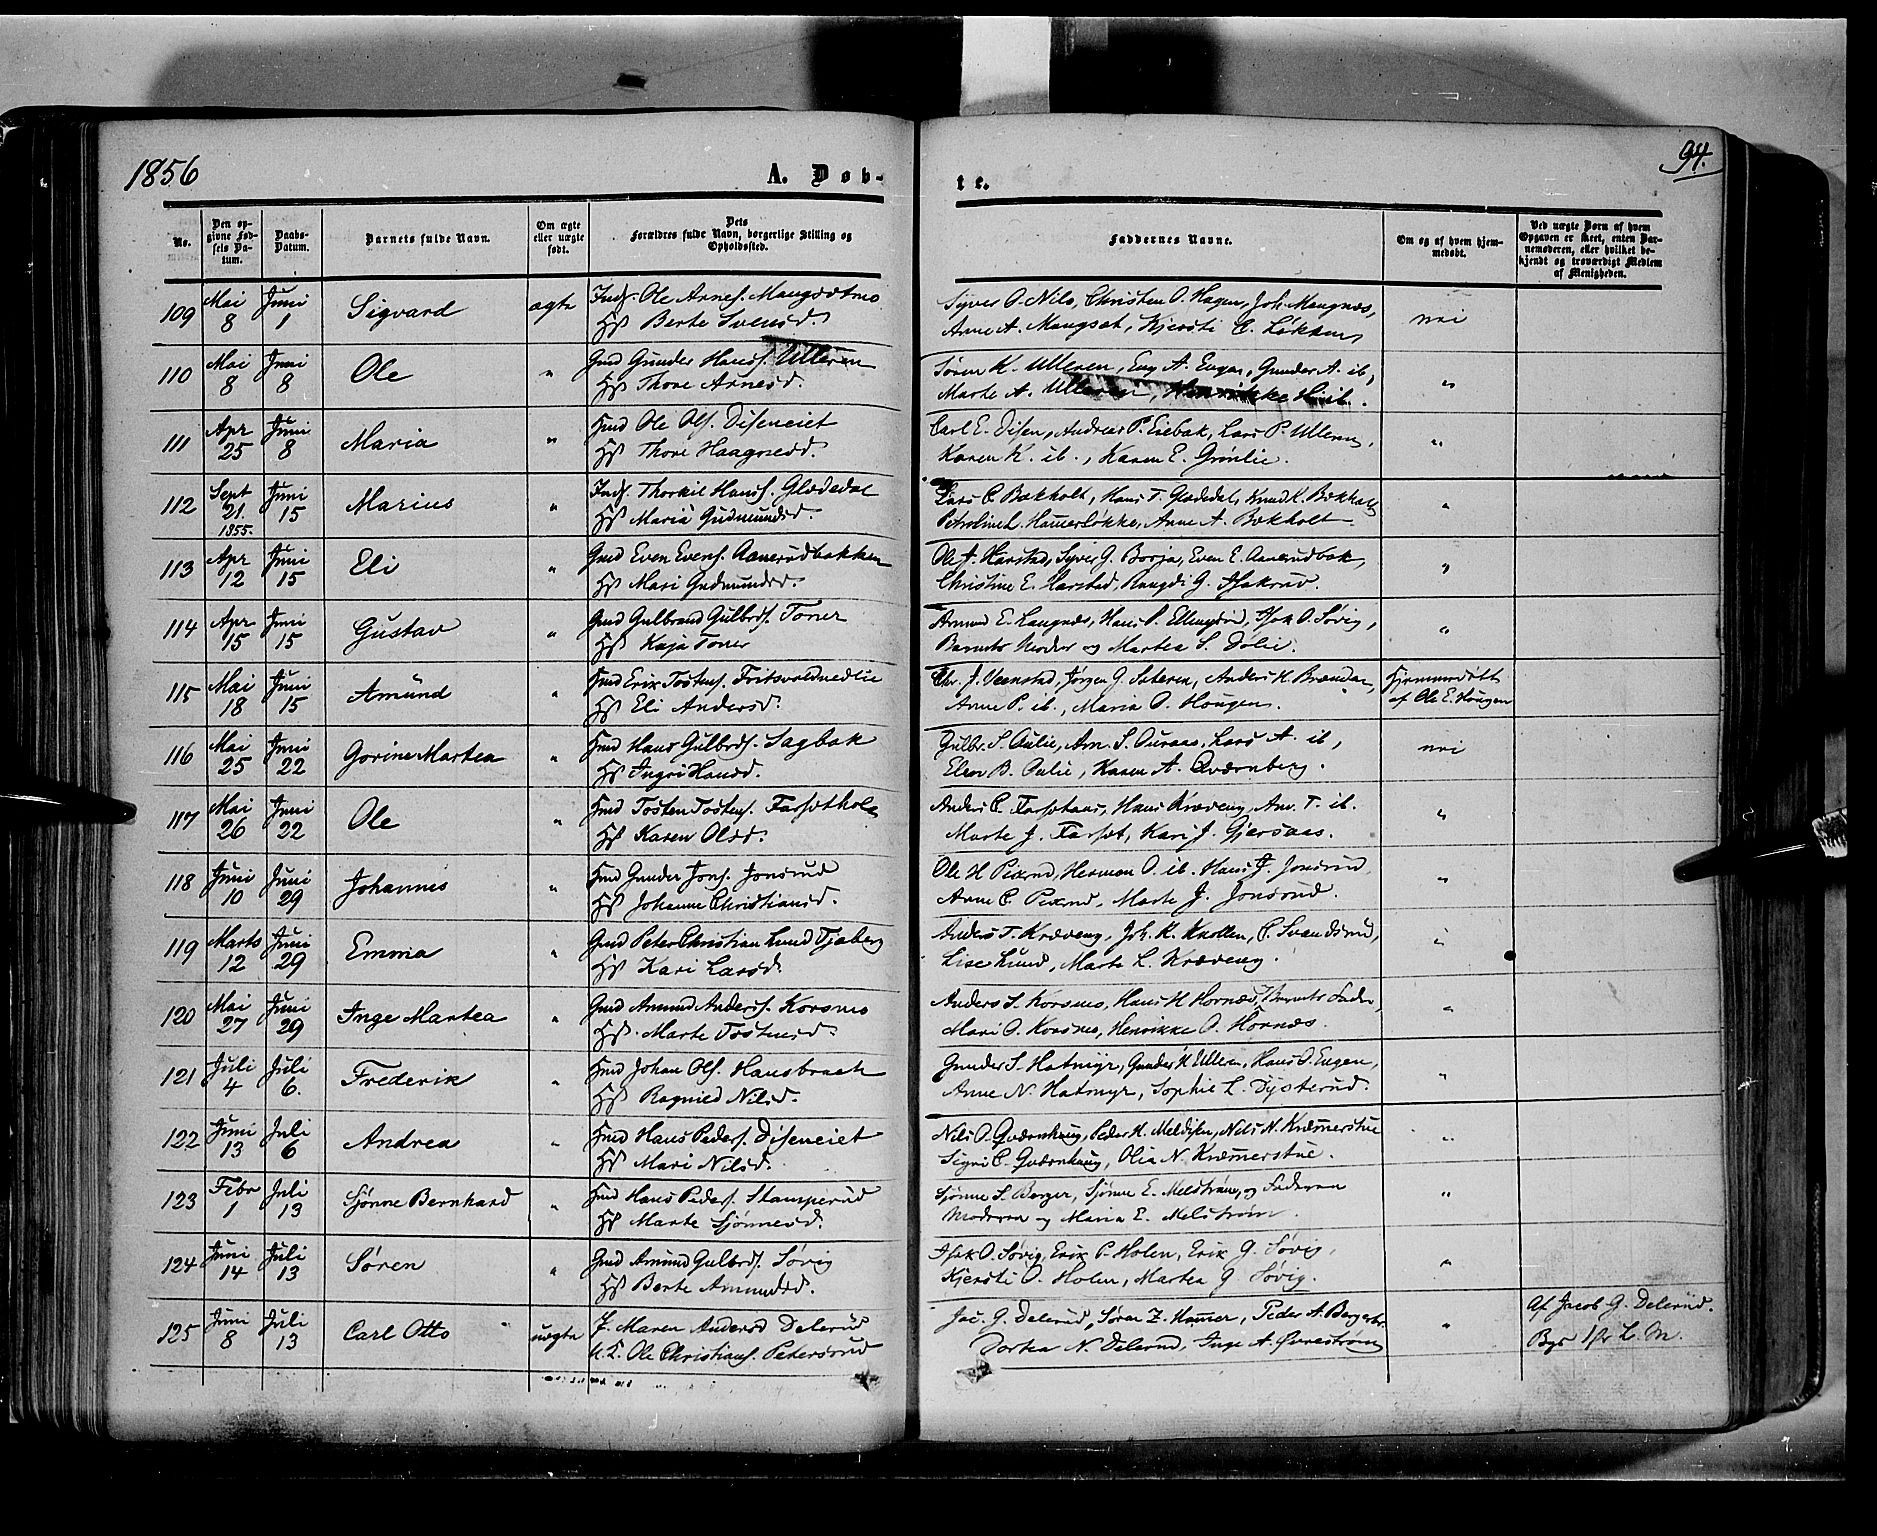 1856
A. Døb-
te.
94.
No.
Den op-
givne Fød-
sels Da-
tum.
Daabs-
Datum.
Barnets fulde Navn.
Om ægte
eller uægte
født.
Dets
Forældres fulde Navn, borgerlige Stilling og
Opholdssted.
Faddernes Navne.
Om og af hvem hjem-
medøbt.
Ved uægte Børn af hvem
Opgaven er skeet, enten Bar-
nemoderen, eller hvilket be-
kjendt og troværdigt Medlem
af Menigheden.
109 Mai 8 Juni 1 Sigvard ægte Inds. Ole Arnes. Mangsætmo
Hst Berte Svensd.
Syver O. Nilo, Christen O. Hagen, Joh. Mangnæs,
Anne A. Mangset, Kjersti E. Løkken
nei
110 Mai 8 Juni 8 Ole " Gmd Gunder Hans. Ulleren
Hst Thore Arnesd.
Søren K. Ulleren, Eng A. Engen, Gunder A. ib,
Marte A. Ulleren, Henrikke H. ib.
"
111 Apr 25 Juni 8 Maria " Hmd Ole Ols. Diseneiet
Hst Thore Haagnesd.
Carl E. Disen, Andreas P. Eiebak, Lars P. Ulleren,
Karen K. ib., Karen E. Grønlie.
"
112 Sept 21 1855. Juni 15 Marius " Inds. Thorkil Hans. Glædedal
Hst Maria Gudmundsd.
Lars C. Bekholt, Hans T. Glædedal, Knud K. Bekholt
Petroline L. Hamerløkke, Anne A. Bekholt
"
113 Apr 12 Juni 15 Eli " Gmd Even Evens. Aanerudbakken
Hst Mari Gudmundsd.
Ole A. Harstad, Syver G. Borja, Even E. Aanerudbak
Christine E. Harstad, Rangdi G.
"
114 Apr 15 Juni 15 Gustav " Gmd Gulbrand Gulbrds. Toner
Hst Kaja Toner
Amund E. Langnæs, Hans P. Ellingsrud, Isak O. Søvig,
Barnets Moder og Martea S. Dølie.
"
115 Mai 18 Juni 15 Amund " Hmd Erik Tostens. Fritsvoldnedlie
Hst Eli Andersd.
Chr. J. Veenstad, Jørgen G. Sæteren, Anders K. Brænden,
Anne P. ib., Maria O. Hougen.
Hjemmedøbt
af Ole E. Hougen
116 Mai 25 Juni 22 Gorine Martea " Hmd Hans Gulbrds. Sagbak
Hst Ingri Hansd.
Gulbr. S. Aulie, Am. S. Auraas, Lars A. ib,
Eleon B. Aulie, Karen A. Qværnberg.
nei
117 Mai 26 Juni 22 Ole " Hmd Tosten Tostens. Farsethole
Hst Karen Olsd.
Anders C. Farsetaas, Hans Kræveng, Am. T. ib.
Marte J. Farset, Kari J. Gjersaas.
"
118 Juni 10 Juni 29 Johannes " Hmd Gunder Jons. Jonsrud
Hst Johanne Christiansd.
Ole H. Pixrud, Herman O. ib. Hans J. Jonsrud
Anne C. Pixrud, Marte J. Jonsrud.
"
119 Marts 12 Juni 29 Emma " Gmd Peter Christian Lund Tjaberg
Hst Kari Larsd.
Anders T. Kræveng, Joh. K. Knollen, C. Svandsrud,
Lise Lund, Marte L. Kræveng.
"
120 Mai 27 Juni 29 Inge Martea " Gmd Amund Anders. Korsmo
Hst Marte Tostensd.
Anders S. Korsmo, Hans H. Hornæs, Barnets Fader,
Mari O. Korsmo, Henrikke O. Hornæs.
"
121 Juli 4 Juli 6. Frederik " Hmd Johan Ols. Hansbraak
Hst Ragnild Nilsd.
Gunder S. Hatmyr, Gunder H. Ulleren, Hans O. Engen,
Anne N. Hatmyr, Sophie L. Dysterud.
"
122 Juni 13 Juli 6 Andrea " Hmd Hans Peders. Diseneiet
Hst Mari Nilsd.
Nils O. Qværnhaug, Peder H. Meldisen, Nils N. Kræmerstue
Signi C. Qværnhaug, Olia N. Kræmerstue.
"
123 Febr 1 Juli 13 Sjønne Bernhard " Hmd Hans Peders. Stamperud
Hst Marte Sjønnesd.
Sjønne S. Berger, Sjønne E. Melstrøm, og Faderen
Moderen og Maria E. Melstrøm.
"
124 Juni 14 Juli 13 Søren " Gmd Amund Gulbrds. Søvig
Hst Berte Amundsd.
Isak O. Søvig, Erik P. Holen, Erik G. Søvig,
Kjersti O. Holen, Martea G. Søvig.
"
125 Juni 8 Juli 13 Carl Otto uægte P. Maren Andersd Delerud
U.K. Ole Christians. Petersrud
Jac. G. Delerud, Søren Z. Hamer, Peder A. Bergerbr.
Dortea N. Delerud, Inge A. Øvrestrøm
"
Af Jacob G. Delerud.
Bgs 1 for L. M.